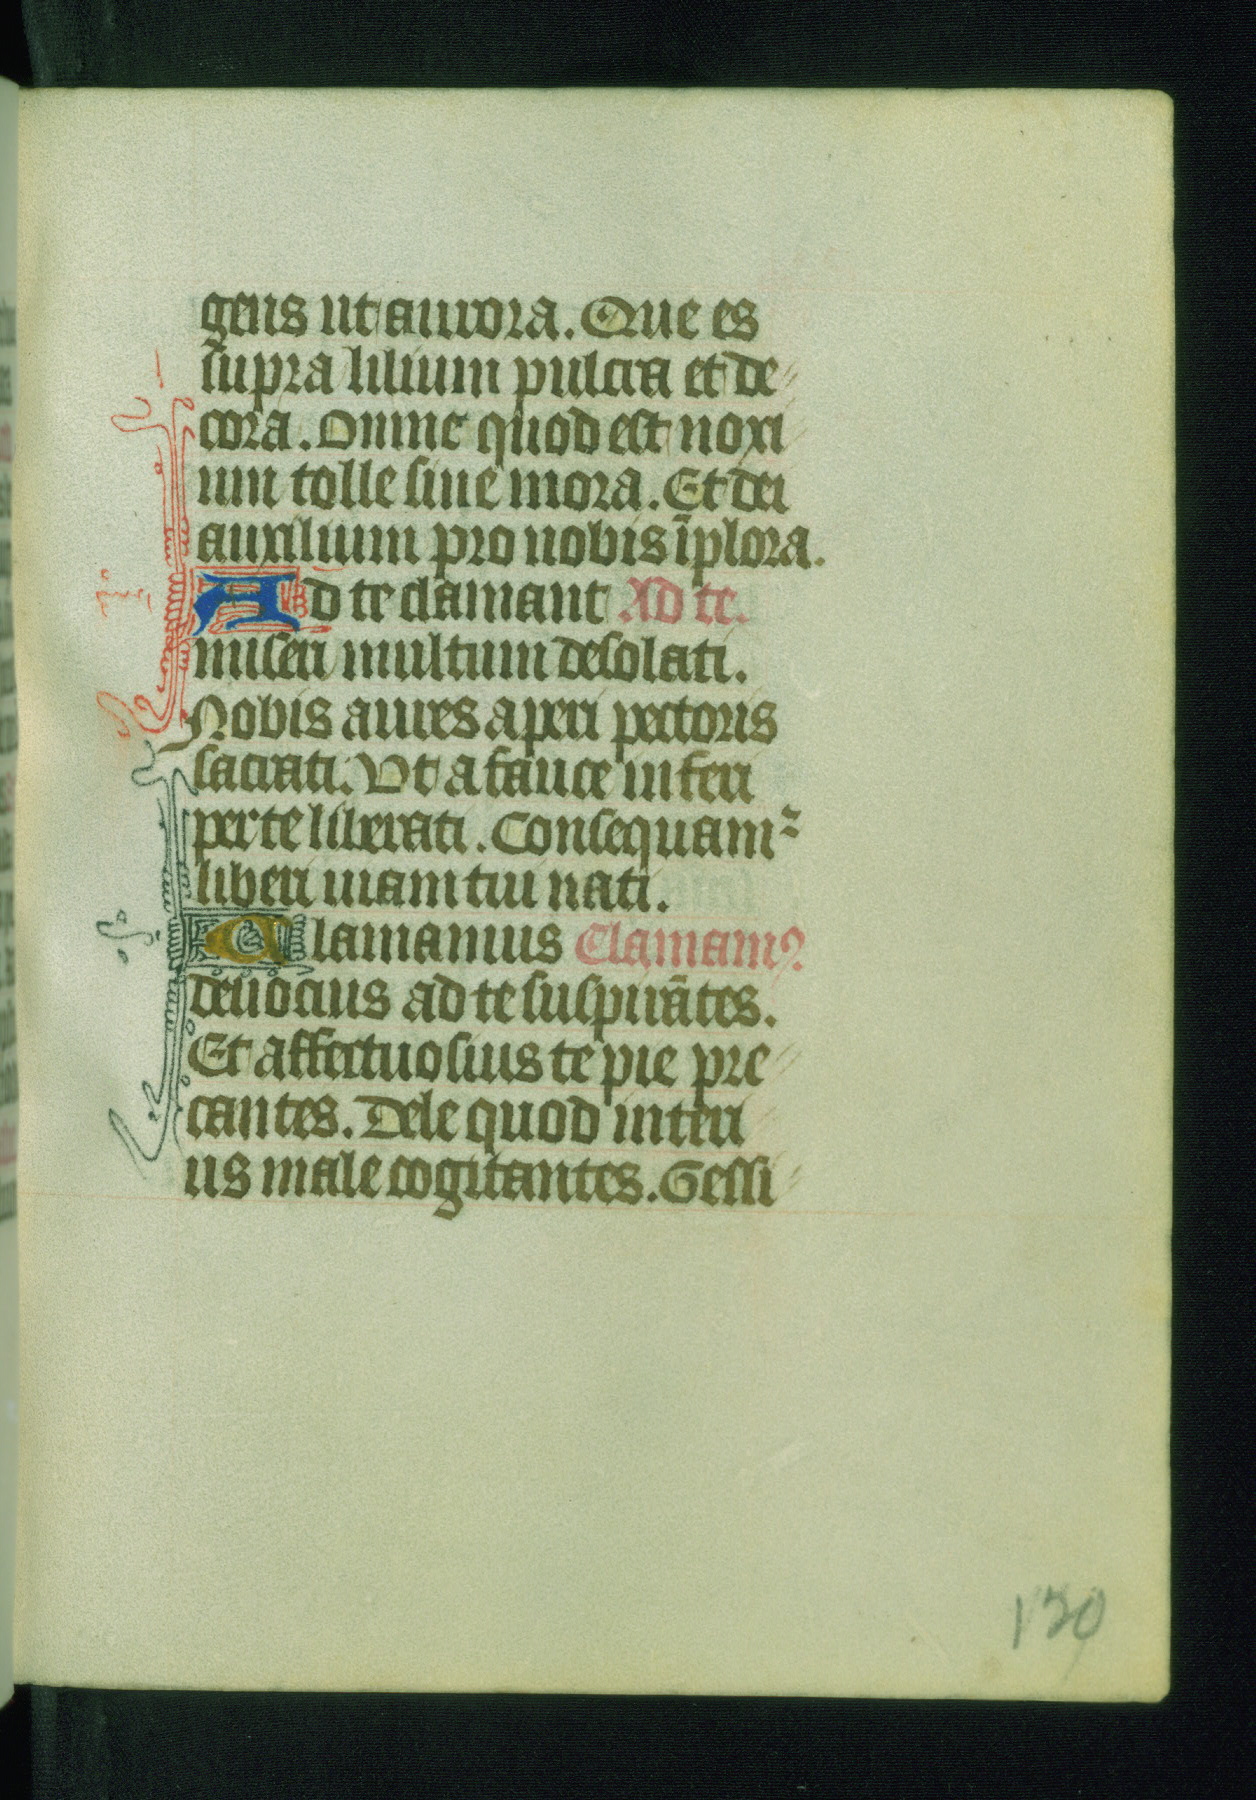 gens ut aurora. Que es
supra lilium pulcra et de
cora. Omne quod est noxi
um tolle sine mora. Et dei
auxilium pro nobis īplora.
Ad te clamant Ad te.
miseri multum desolati.
Nobis aures aperi pectoris
sacrati. Vt a fauce inferi
per te liberati. Consequam²
liberi uiam tui nati.
Clamamus Clamamꝰ
deuocius ad te suspirātes.
Et affectuosius te pie pre
cantes. Dele quod interi
us male cogitantes. Gessi
130